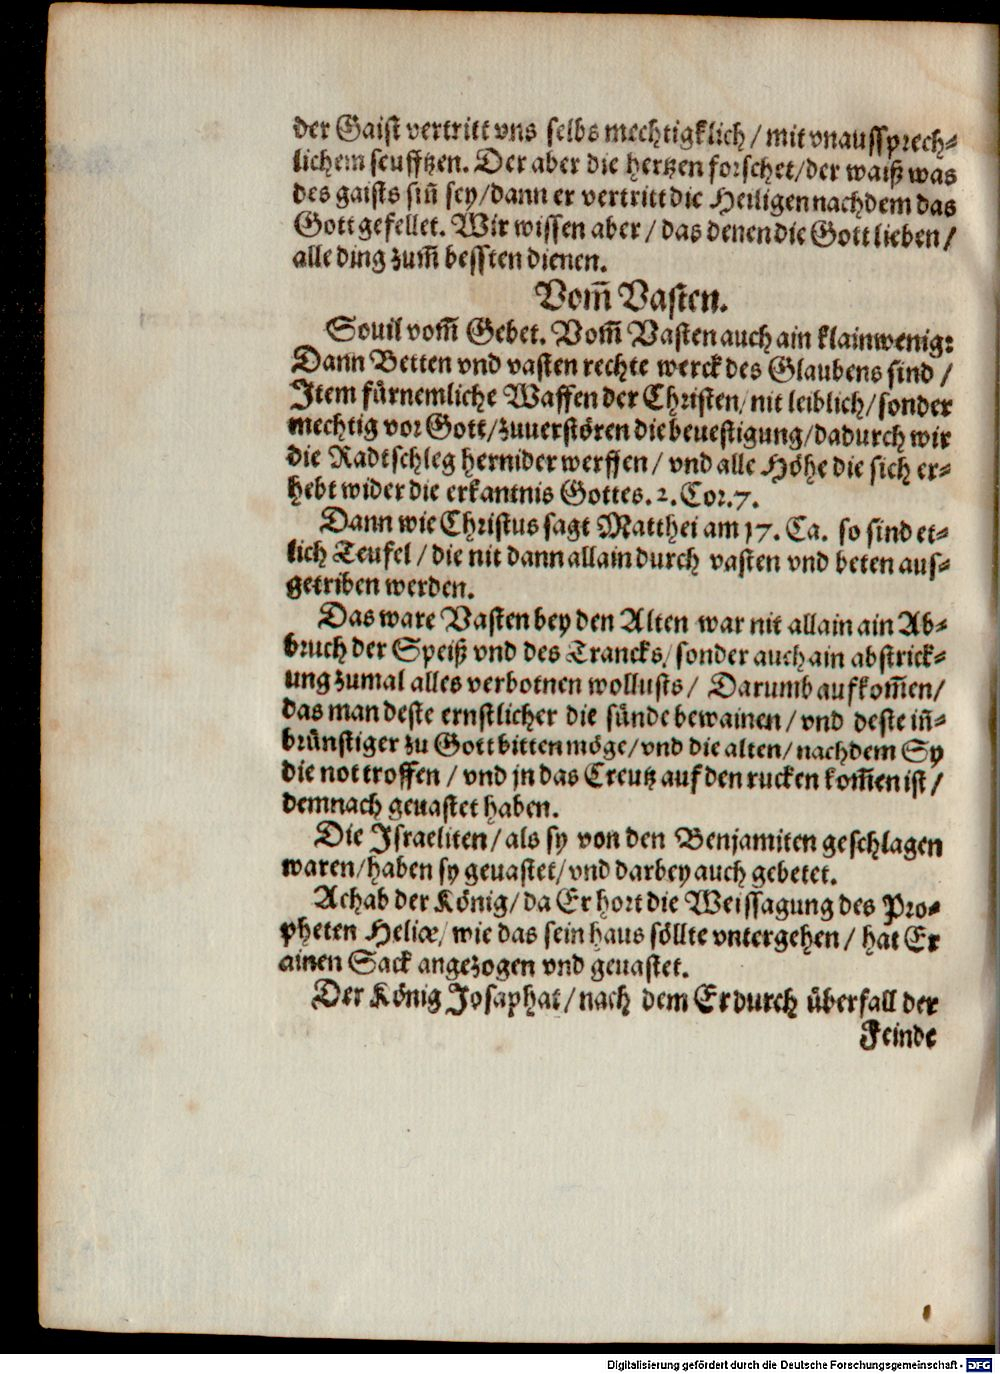 der Gaist vertritt vns selbs mechtigklich / mit vnaussprech-
lichem seufftzen. Der aber die hertzen forschet/der waiß was
des gaists sin̄ sey/dann er vertritt die Heiligen nachdem das
Gott gefellet. Wir wissen aber / das denen die Gott lieben /
alle ding zum̄ bessten dienen.
Vom̄ Vasten.
Souil vom̄ Gebet. Vom̄ Vasten auch ain klain wenig:
Dann Betten vnd vasten rechte werck des Glaubens sind /
Item fürnemliche Waffen der Christen/nit leiblich/sonder
mechtig vor Gott/zuuerstören die beuestigung/dadurch wir
die Radtschleg hernider werffen / vnd alle Höhe die sich er-
hebt wider die erkantnis Gottes. 2. Cor. 7.
Dann wie Christus sagt Matthei am 17. Ca. so sind et-
lich Teufel / die nit dann allain durch vasten vnd beten aus-
getriben werden.
Das ware Vasten bey den Alten war nit allain ain Ab-
bruch der Speiß vnd des Trancks/sonder auch ain abstrick-
ung zumal alles verbotnen wollusts / Darumb aufkom̄en/
das man deste ernstlicher die sünde bewainen / vnd deste in̄-
brünstiger zu Gott bitten möge/vnd die alten/nachdem Sy
die not troffen / vnd jn das Creutz auf den rucken kom̄en ist /
demnach geuastet haben.
Die Israeliten / als sy von den Benjamiten geschlagen
waren/haben sy geuastet/vnd darbey auch gebetet.
Achab der König/da Er hort die Weissagung des Pro-
pheten Heliæ/wie das sein haus söllte vntergehen / hat Er
ainen Sack angezogen vnd geuastet.
Der König Josaphat / nach dem Er durch überfall der
Feinde
Digitalisierung gefördert durch die Deutsche Forschungsgemeinschaft - DFG